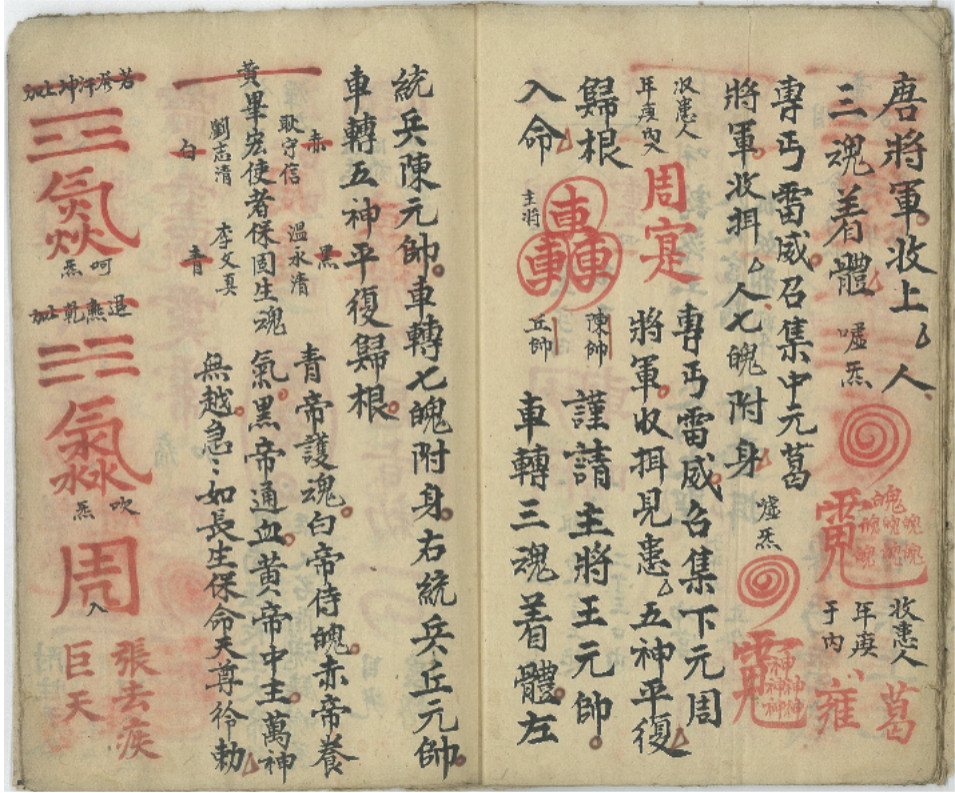 唐將軍收上厶人
三魂着體 噓炁
收患人
年庚
于內
葛
雍
專丐雷威召集中元葛
將軍收捐厶人七魄附身 噓炁
收患人
年庚內
周
寔
專丐雷威召集下元周
將軍收捐見患厶五神平復
歸根
入命
主將
陳帥
丘帥
謹請主將王元帥
車轉三魂着體左
統兵陳元帥車轉七魄附身右統兵丘元帥
車轉五神平復歸根
赤
耿守信
黑
溫永清
黃
畢宏使者保固生魂
白
劉志清
青
李文真
青帝護魂白帝侍魄赤帝養
氣黑帝通血黃帝中主萬神
無越急急如長生保命天尊衿勅
氣
炎
呵
炁
吹
炁
周
入
張去疾
巨天